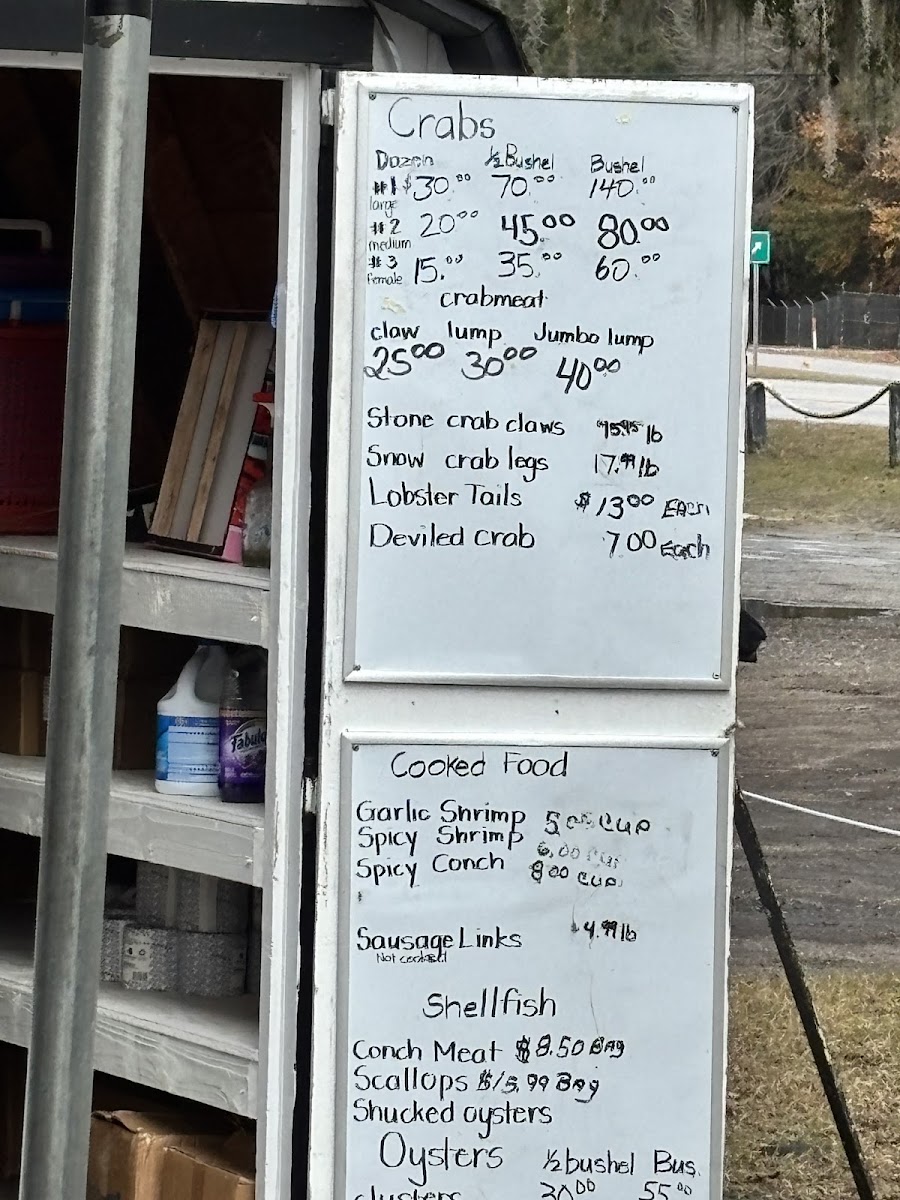 Crabs
Dozen ½ Bushel Bushel
#1 $30.00 70.00 140.00
large
#2 20 00 45.00 80.00
medium
#3 15.00 35.00 60.00
female
crabmeat
claw lump Jumbo lump
25 00 30 00 40 00
Stone crab claws lb
Snow crab legs 17.99 lb
Lobster Tails $13 00 Each
Deviled crab 7 00 Each
Cooked Food
Garlic Shrimp 5 cup
Spicy Shrimp 6.00 cup
Spicy Conch 8 00 cup
Sausage Links 4.99 lb
Not cooked
Shellfish
Conch Meat $8.50 Bag
Scallops $15.99 Bag
Shucked oysters
Oysters ½ bushel Bus.
clusters 30 00 55 00
Fabulo